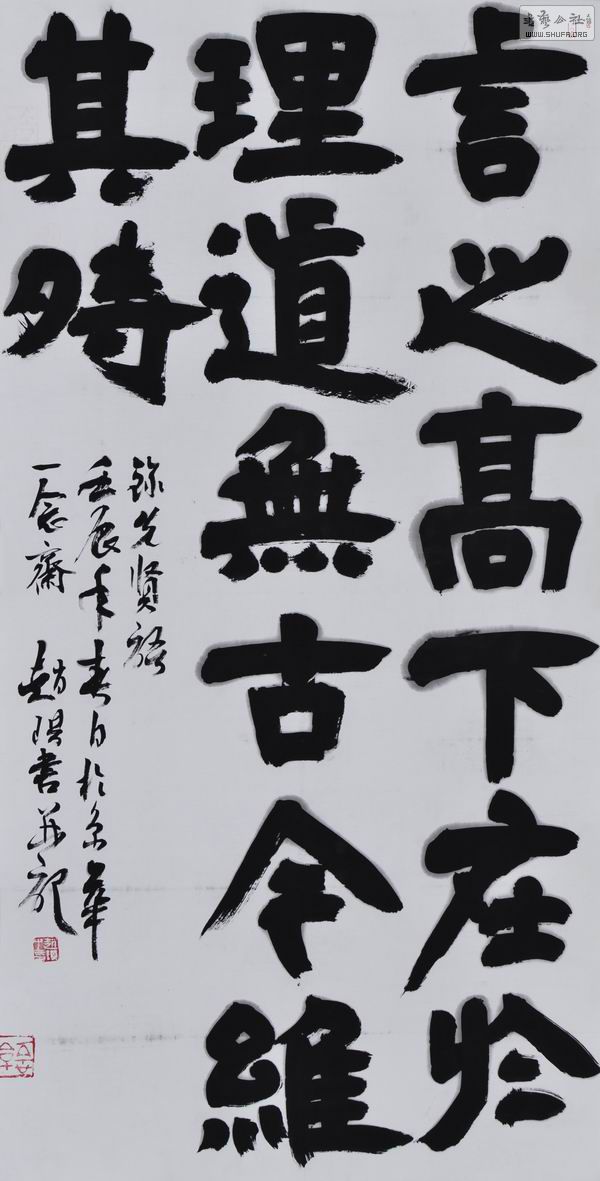 言之高下在於
理道無古今維
其時
錄先贤語
壬辰年春日於京華
一念齋 趙書並記
书艺公社
WWW.SHUFA.ORG